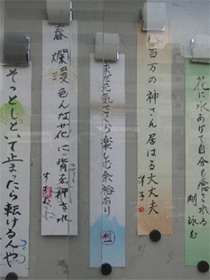 花に水あげて自分も癒される
百万の神さん居はる大丈夫
洋子
楽しむ余裕あり
春爛漫色んな花に背を押され
そっとしといて止まったら転けるんや